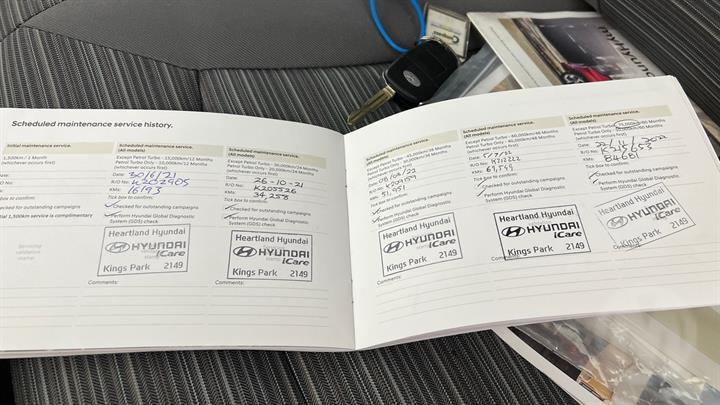 Scheduled maintenance service history.
Initial maintenance service.
1,500km / 1 Month
(whichever occurs first)
Date:
R/O No:
KMs:
1,500km service is complimentary
Servicing
validation
stamp
Comments:
Scheduled maintenance service.
(All models)
Except Petrol Turbo - 15,000km/12 Months
Petrol Turbo Only - 10,000km/12 Months
(whichever occurs first)
Date: 30/6/21
R/O No: K202905
KMs: 16193
Tick box to confirm:
Checked for outstanding campaigns
Perform Hyundai Global Diagnostic
System (GDS) check
Heartland Hyundai
HYUNDAI
iCare
Kings Park 2149
Comments:
Scheduled maintenance service.
(All models)
Except Petrol Turbo - 30,000km/24 Months
Petrol Turbo Only - 20,000km/24 Months
(whichever occurs first)
Date: 26-10-21
R/O No: K205526
KMs: 34,258
Tick box to confirm:
Checked for outstanding campaigns
Perform Hyundai Global Diagnostic
System (GDS) check
Heartland Hyundai
HYUNDAI
iCare
Kings Park 2149
Comments:
Scheduled maintenance service.
(All models)
Except Petrol Turbo - 45,000km/36 Months
(whichever occurs first)
Date: 08/04/22
R/O No:
KMs: 51,951
Tick box to confirm:
Checked for outstanding campaigns
Perform Hyundai Global Diagnostic
System (GDS) check
Heartland Hyundai
HYUNDAI
iCare
Kings Park 2149
Comments:
Scheduled maintenance service.
(All models)
Except Petrol Turbo - 60,000km/48 Months
(whichever occurs first)
Date:
R/O No: K212222
KMs: 67,549
Tick box to confirm:
Checked for outstanding campaigns
Perform Hyundai Global Diagnostic
System (GDS) check
Heartland Hyundai
HYUNDAI
iCare
Kings Park 2149
Comments:
Scheduled maintenance service.
(All models)
(whichever occurs first)
Date:
R/O No: K215653
KMs: 84681
Tick box to confirm:
Checked for outstanding campaigns
Perform Hyundai Global Diagnostic
System (GDS) check
Heartland Hyundai
HYUNDAI
iCare
Kings Park 2149
Comments: